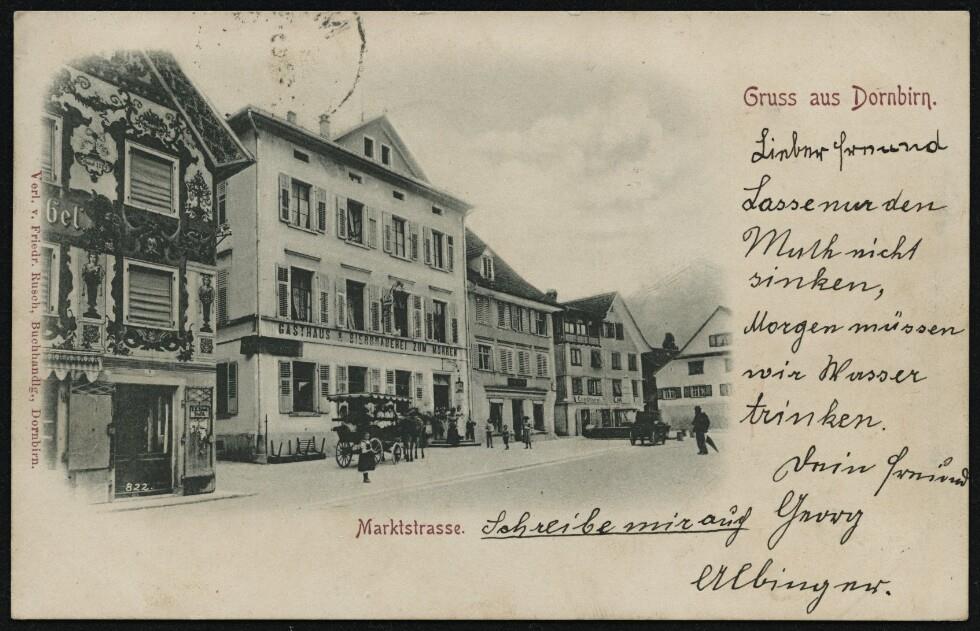 Gruss aus Dornbirn.
Lieber Freund
Lasse nur den
Muth nicht
sinken,
Morgen müssen
wir Wasser
trinken.
Dein Freund
Georg
Albinger.
Schreibe mir auch
Marktstrasse.
Verl. v. Friedr. Rusch, Buchhandlg., Dornbirn.
bel
GASTHAUS & BIERBRAUEREI ZUM MOHREN
822.